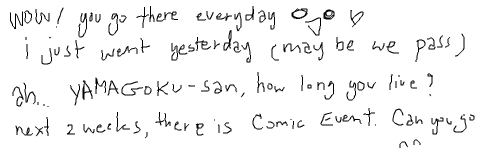 WOW! you go there everyday
i just went yesterday (may be we pass)
ah... YAMAGOKU-san, how long you live?
next 2 weeks, there is Comic Event. Can you go